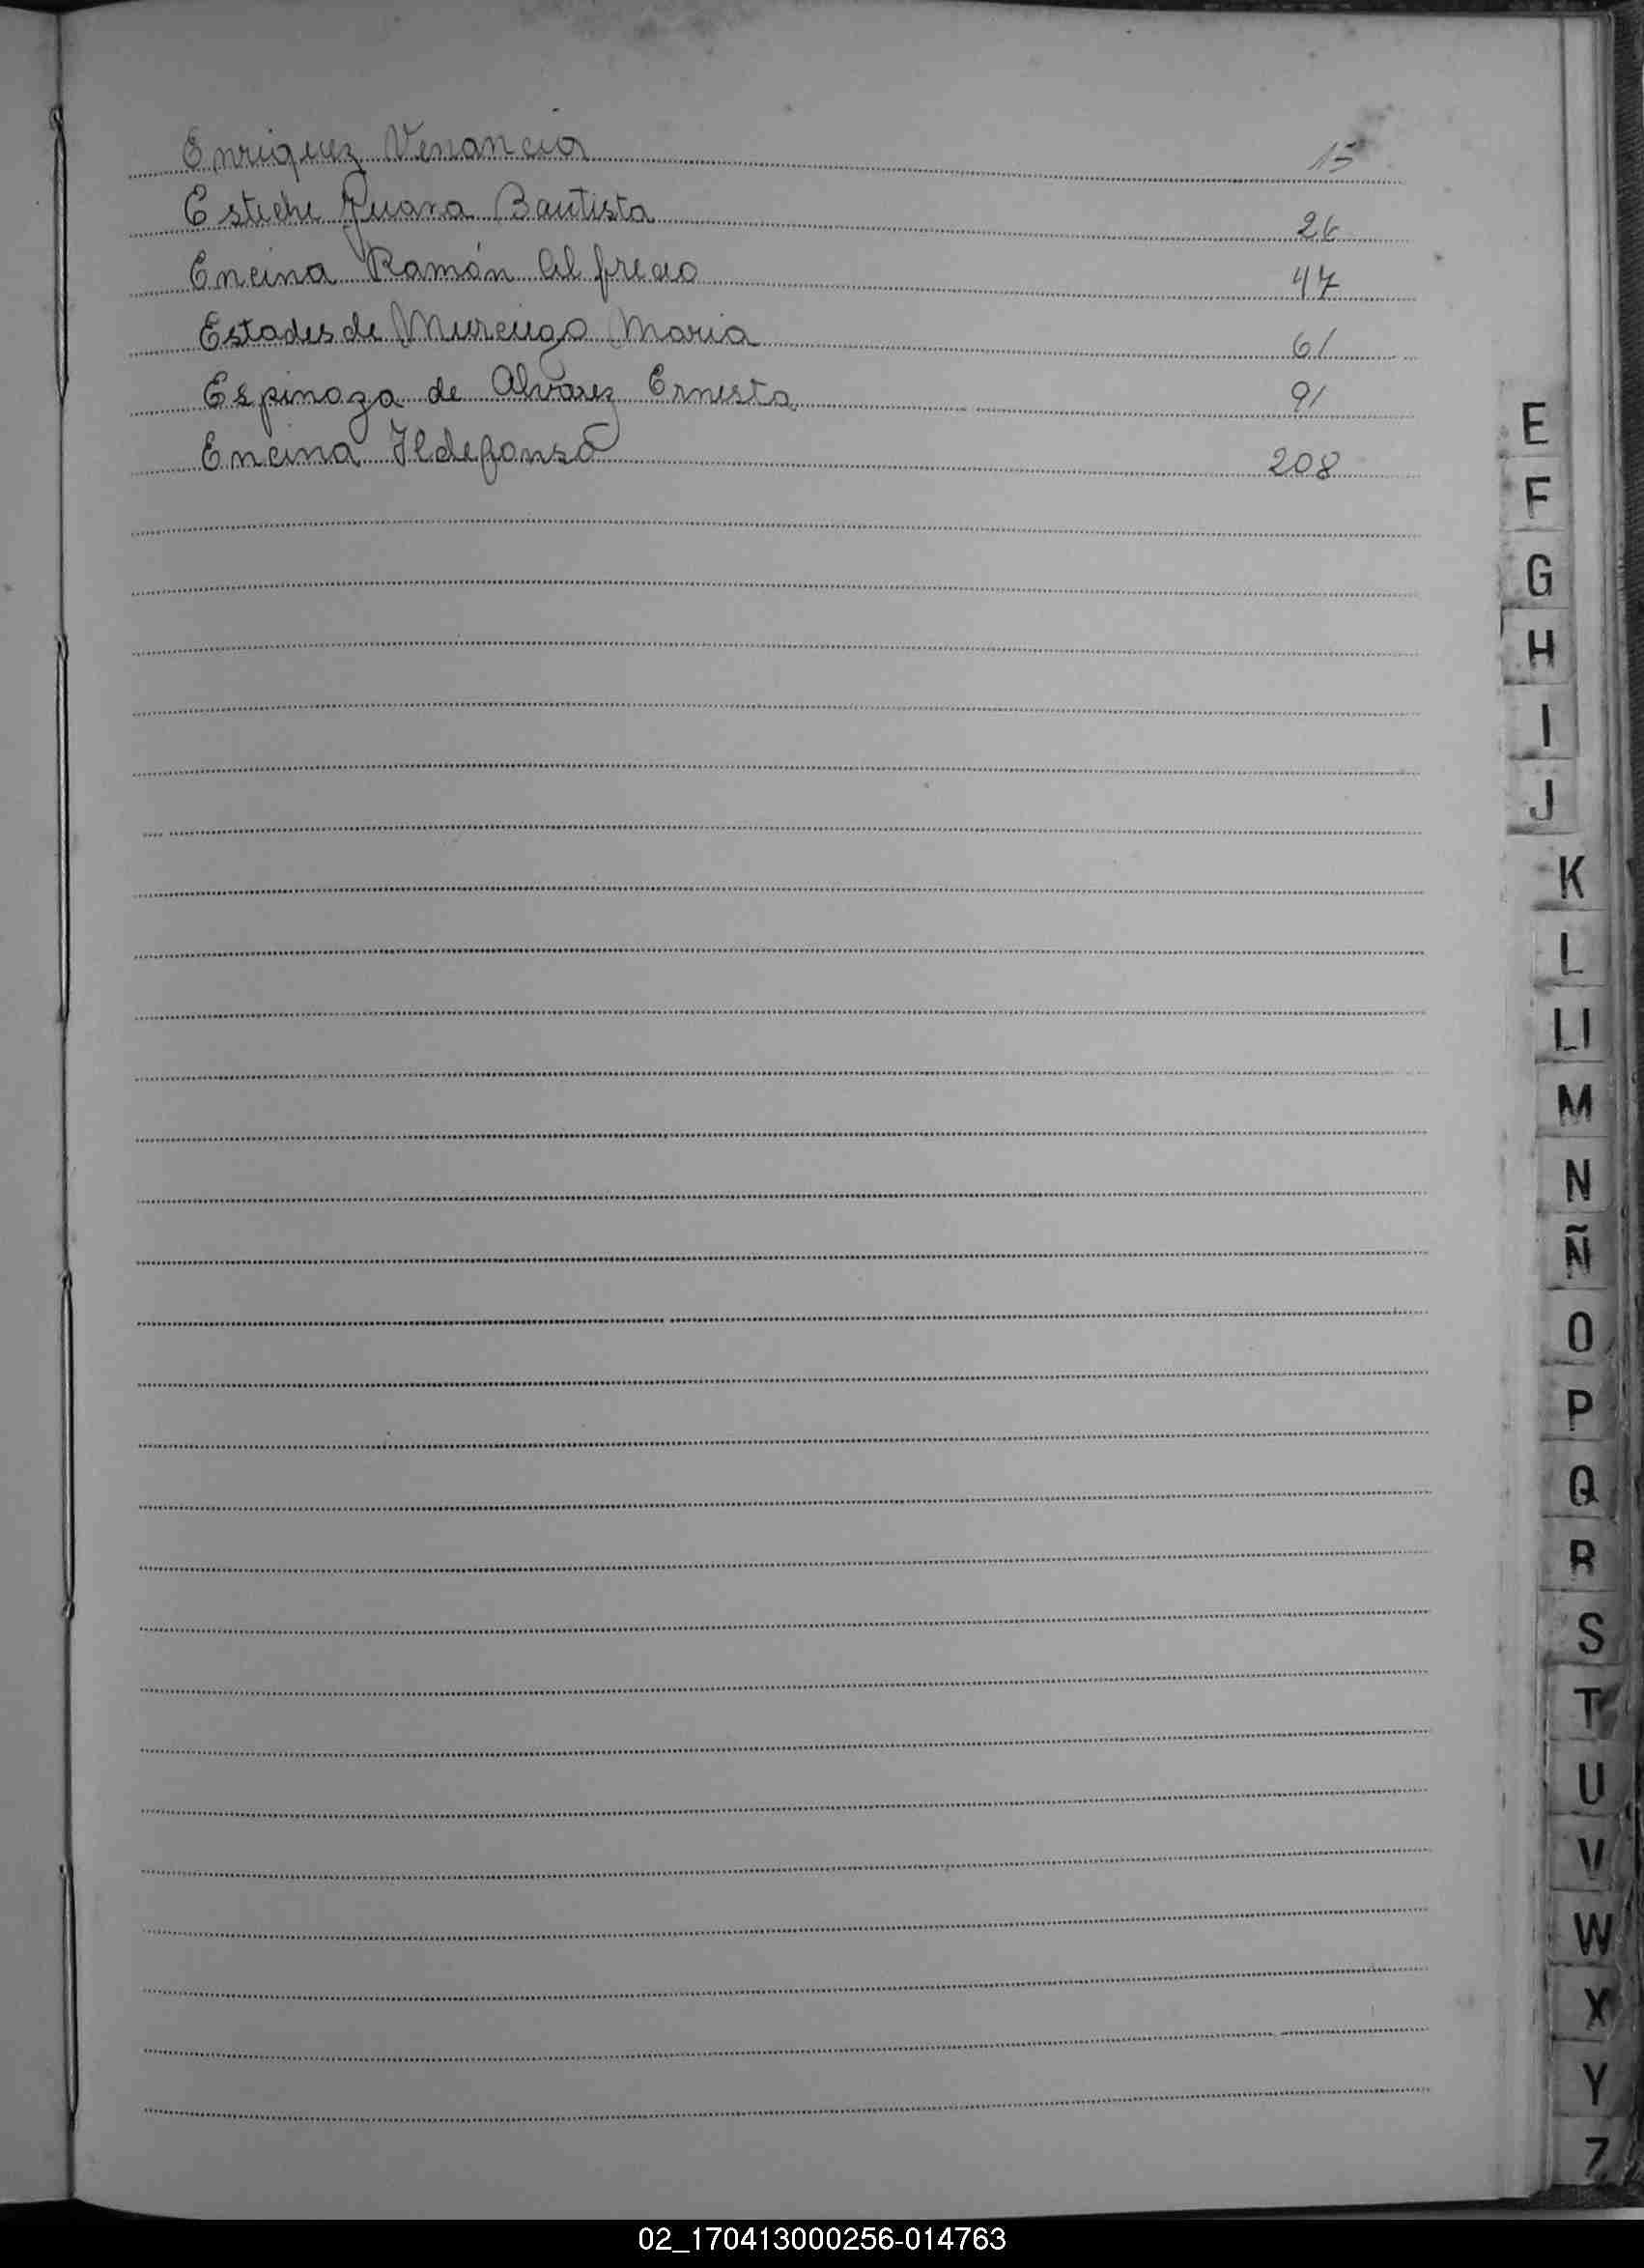 Enriquez Venancia 15
Esteche Juana Bautista 26
Encina Ramón Alfredo 47
Estades de Murciego Maria 61
Espinoza de Alvarez Ernesta 91
Encina Ildefonso 208
E
F
G
H
I
J
K
L
Ll
M
N
Ñ
O
P
Q
R
S
T
U
V
W
X
Y
Z
02_170413000256-014763